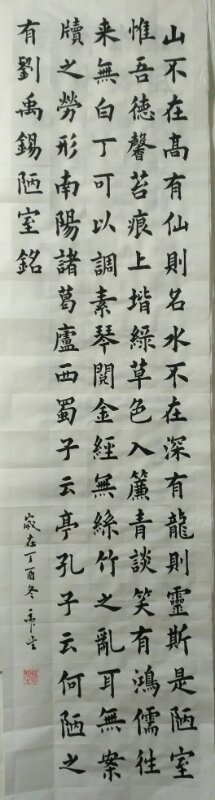 山不在高有仙則名水不在深有龍則靈斯是陋室
惟吾徳馨苔痕上堦綠草色入簾青談笑有鴻儒往
来無白丁可以調素琴閱金經無絲竹之亂耳無案
牘之勞形南陽諸葛廬西蜀子云亭孔子云何陋之
有劉禹錫陋室銘
歲在丁酉冬